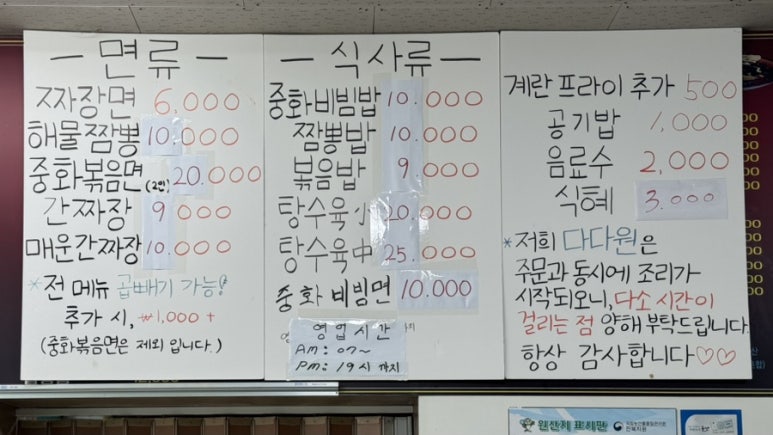 — 면류 —
짜장면 6,000
해물짬뽕 10,000
중화볶음면(2인) 20.000
간짜장 9 000
매운간짜장 10,000
*전 메뉴 곱빼기 가능!
추가 시, ₩1,000 +
(중화볶음면은 제외 입니다.)
— 식사류 —
중화비빔밥 10.000
짬뽕밥 10.000
볶음밥 9.000
탕수육 小 20,000
탕수육 中 25.000
중화 비빙면 10.000
영업시간
AM: 07~
PM: 19시 까지
계란 프라이 추가 500
공기밥 1,000
음료수 2,000
식혜 3.000
*저희 다다원은
주문과 동시에 조리가
시작되오니, 다소 시간이
걸리는 점 양해 부탁드립니다
항상 감사합니다♡♡
원산지 표시판